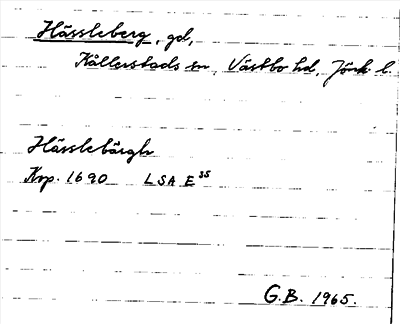 Hässleberg, gd,
Kållerstads sn, Västbo hd, Jönk. l.
Hässlebärgh
Krp. 1690 LSA E 35
G.B. 1965.